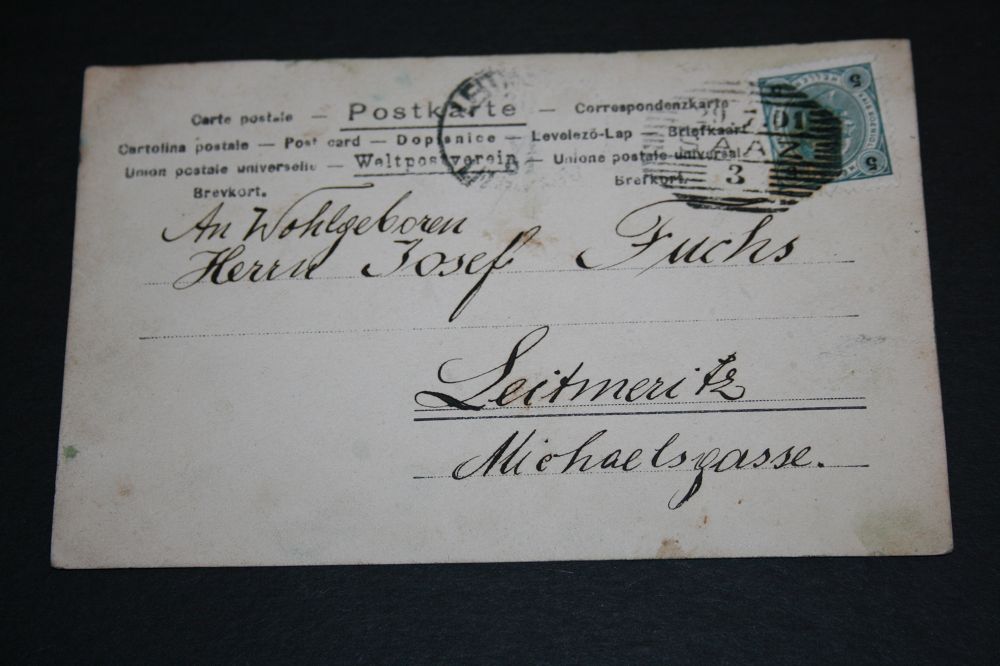 Carte postale — Postkarte — Correspondenzkarte
Cartolina postale — Post card — Dopisnice — Levelező-Lap — Briefkaart
Union postale universelle — Weltpostverein — Unione postale universal
Brevkort. Brefkort.
5
5
LEIT
29 7 01
A A
3
An Wohlgeboren
Herrn Josef Fuchs
Leitmeritz
Michaelsgasse.